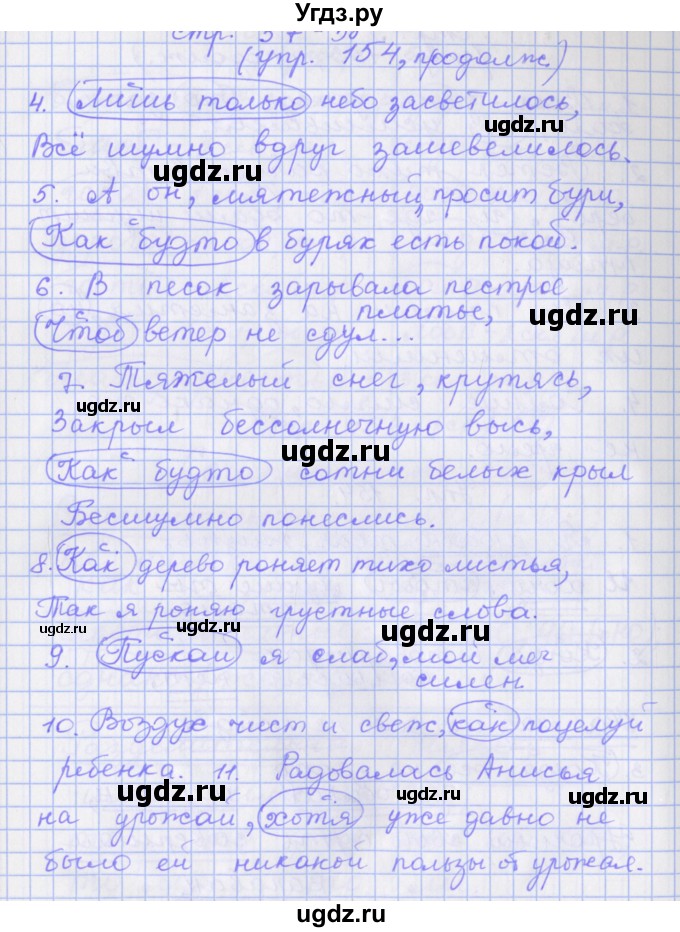 Угдз.ру
стр. 37-38
(упр. 154, продолж.)
4. Лишь только небо засветилось,
Всё шумно вдруг зашевелилось.
ugdz.ru
ugdz.ru
5. А он, мятежный, просит бури,
с
Как будто в бурях есть покой.
6. В песок зарывала пестрое
платье,
ugdz.ru
с
Чтоб ветер не сдул...
7. Тяжелый снег, крутясь,
ugdz.ru
Закрыл бессолнечную высь,
ugdz.ru
ugdz.ru
с
Как будто сотни белых крыл
Бесшумно понеслись.
с
8. Как дерево роняет тихо листья,
Так я роняю грустные слова.
ugdz.ru
ugdz.ru
ugdz.ru
с
9. Пускай я слаб, мой меч
силен.
с
10. Воздух чист и свеж, как поцелуй
ребенка. 11. Радовалась Анисья
ugdz.ru
ugdz.ru
ugdz.ru
с
на урожай, хотя уже давно не
было ей никакой пользы от урожая.
ugdz.ru